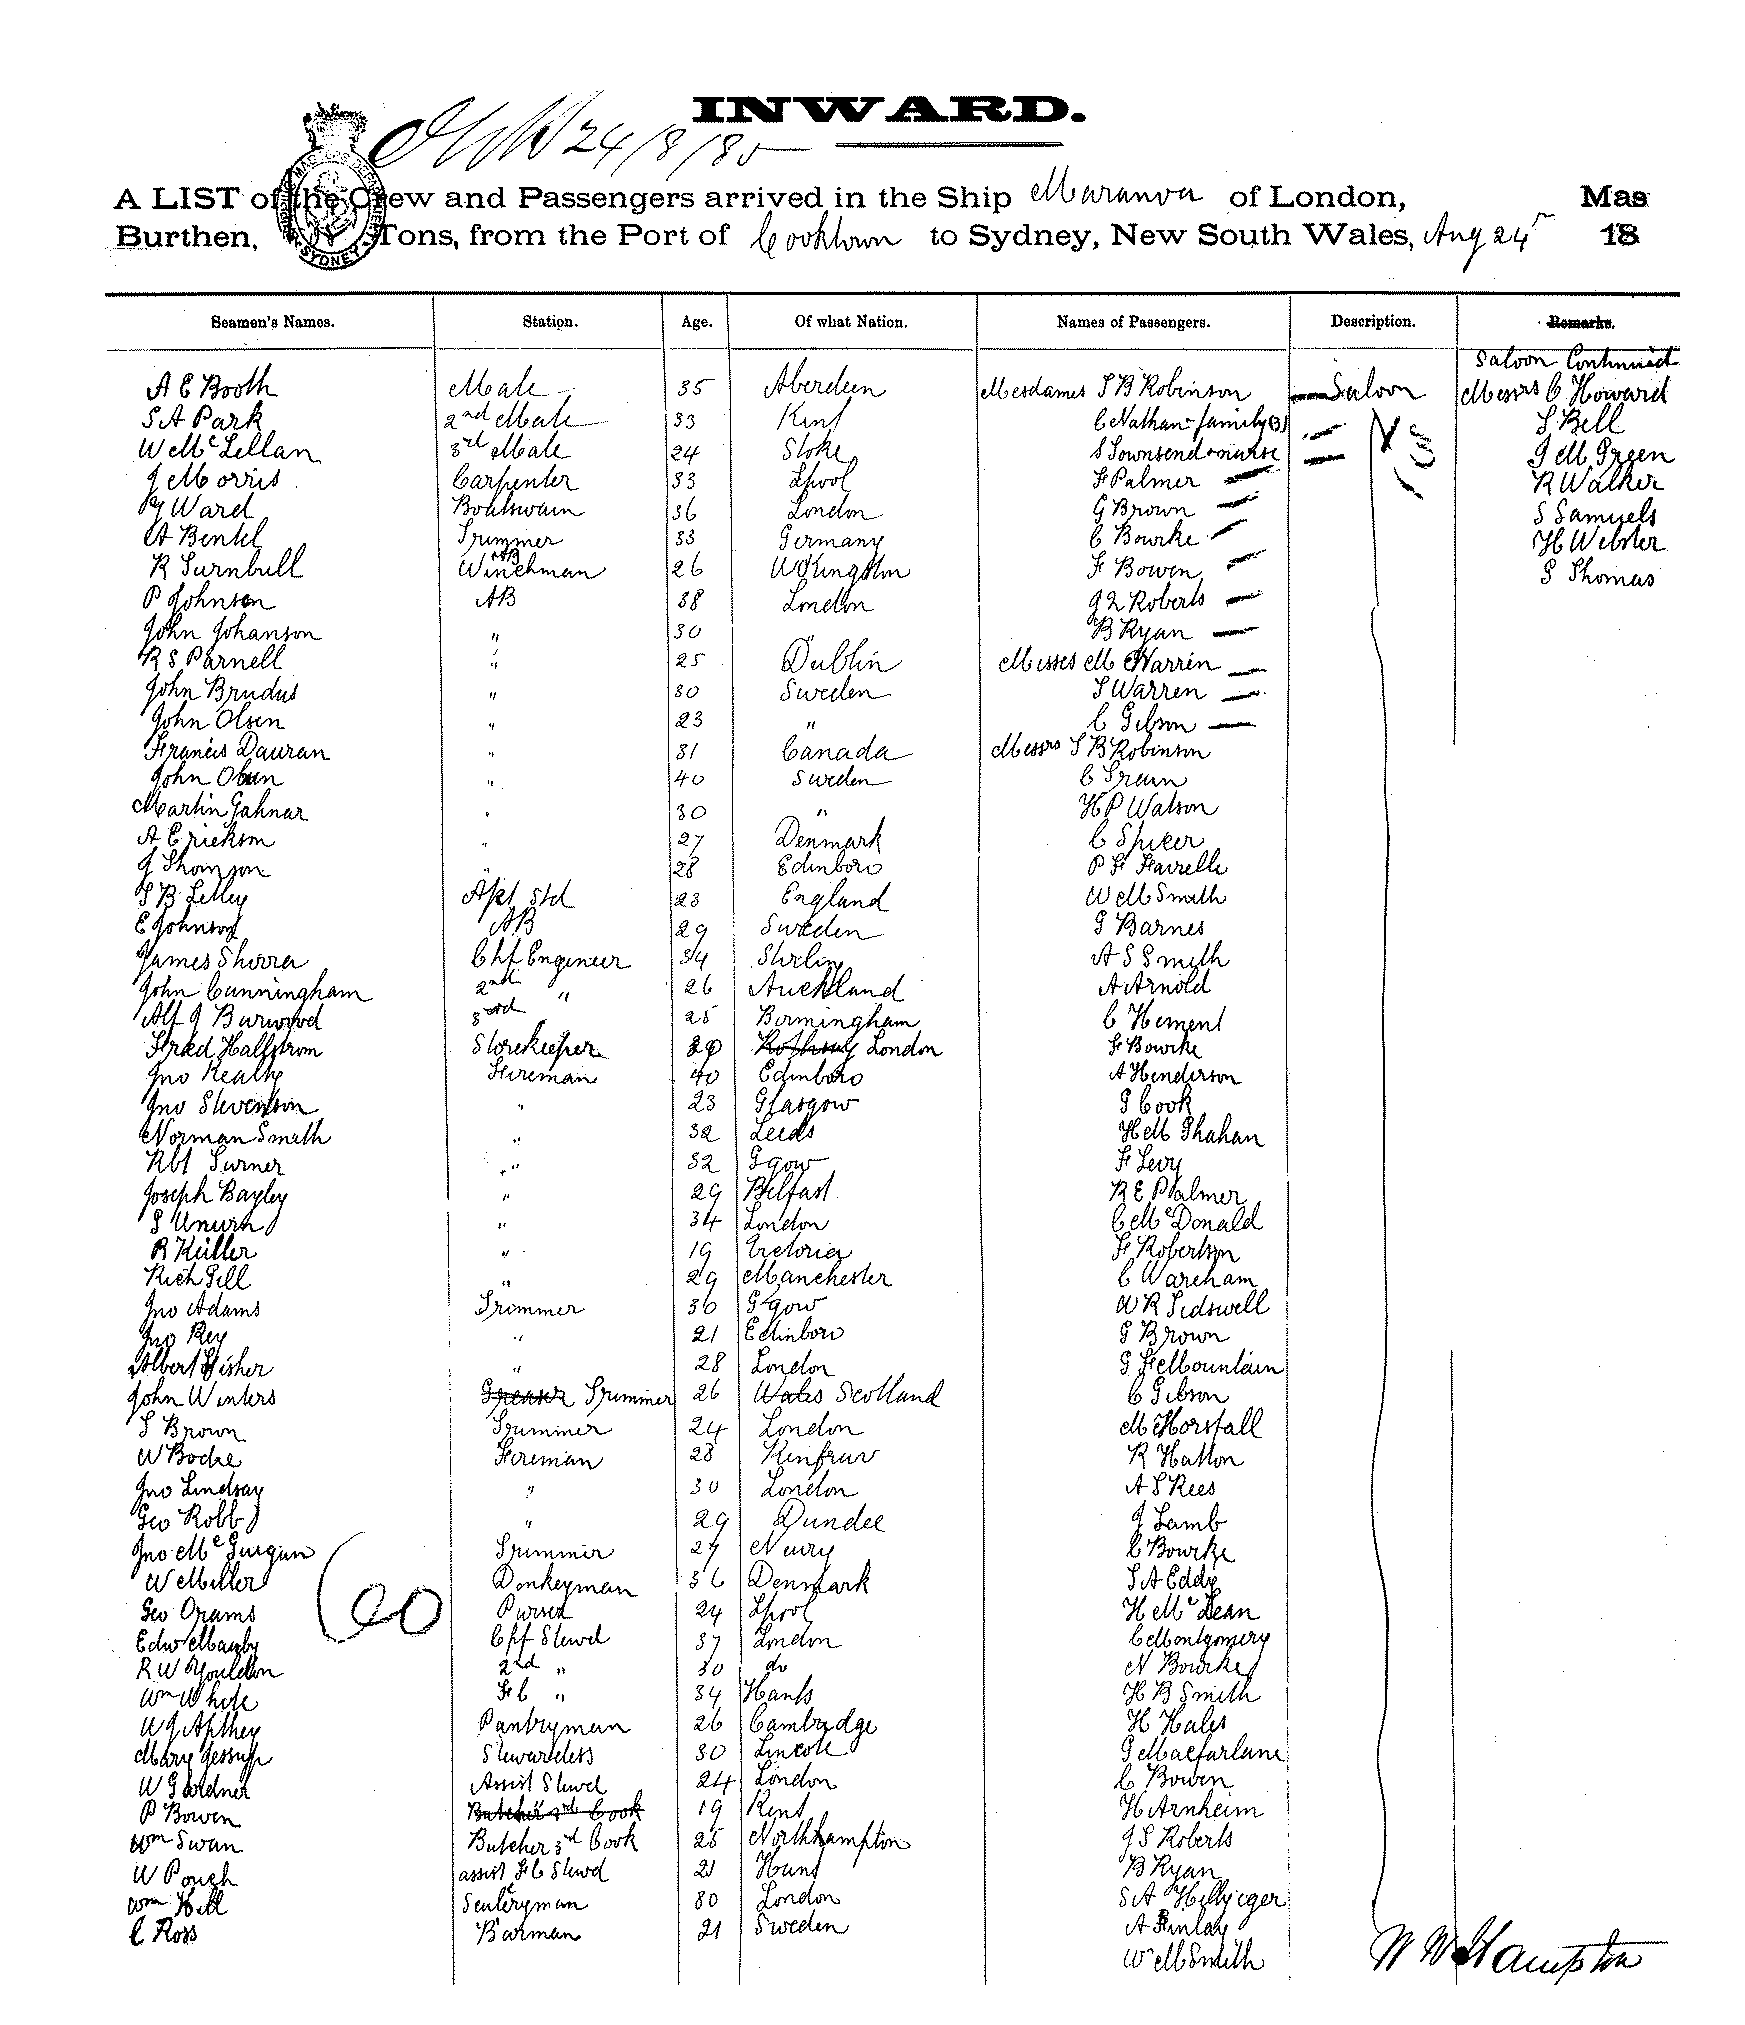 INWARD.
24/8/85
A LIST of the Crew and Passengers arrived in the Ship Maranoa of London, Mas
Burthen, Tons, from the Port of Cooktown to Sydney, New South Wales, Aug 24 18
SYDNEY
Seamen's Names. Station. Age. Of what Nation. Names of Passengers. Description. Remarks.
Saloon Continued
A E Booth Mate 35 Aberdeen Mesdames T B Robinson Saloon Messrs C Howard
S A Park 2nd Mate 33 Kent C Nathan family (3) T Bell
W McLellan 3rd Mate 24 Stoke S Townsend nurse J M Green
J Morris Carpenter 33 Lpool F Palmer R Walker
Ward Boatswain 36 London G Brown S Samuels
A Bentel Trimmer 33 Germany C Bourke H Webster
R Turnbull AB Winchman 26 Wkington F Bowen G Thomas
P Johnson AB 38 London J L Roberts
John Johanson " 30 " B Ryan
R S Parnell " 25 Dublin Misses M Warren
John Brudus " 30 Sweden T Warren
John Olsen " 23 " C Gibson
Francis Dauran " 31 Canada Messrs T B Robinson
John " 40 Sweden C Train
Martin Gahnar " 30 " H P Watson
A Erickson " 27 Denmark C Spicer
J Thomson " 28 Edinboro P F Fairelle
T B Lilley Apt Std 23 England W M Smith
E Johnson AB 29 Sweden G Barnes
James Shorra Chf Engineer 34 Stirling A S Smith
John Cunningham 2nd " 26 Auckland A Arnold
Alf J Burwood 3rd 25 Birmingham C Hement
Fred Hallstrom Storekeeper 29 London F Bourke
Jno Keath Fireman 40 Edinboro A Henderson
Jno Stevenson " 23 Glasgow G Cook
Norman Smith " 32 Leeds H M Shahan
Rbt Turner " 32 Ggow F Levy
Joseph Bayley " 29 Belfast R E Palmer
T Unwin " 34 London C McDonald
R Küller " 19 Victoria F Robertson
Rich Gill " 29 Manchester C Wareham
Jno Adams Trimmer 30 Ggow W R Sidswell
Jno Rey " 21 Edinboro G Brown
Albert Fisher " 28 London G F Mountain
John Winters Greaser Trimmer 26 Wales Scotland C Gibson
T Brown Trimmer 24 London M Horsfall
W Bodie Fireman 28 Renfrew R Hatton
Jno Lindsay " 30 London A S Rees
Geo Robb " 29 Dundee J Lamb
Jno McGurgan Trimmer 27 Newry C Bourke
W Miller Donkeyman 36 Denmark S A Eddy
60
Geo Orams Purser 24 Lpool H McLean
Edw Maxby Chf Stewd 37 London C Montgomery
R W Youldon 2nd " 30 do N Bourke
Wm White F C " 34 Hants H B Smith
W J Apthey Pantryman 26 Cambridge H Hales
Mary Jessup Stewardess 30 Lincoln G Macfarlane
W Gardner Assist Stewd 24 London C Bowen
P Bowen Butcher 3rd Cook 19 Kent H Arnheim
Wm Swan Butcher 3rd Cook 25 Northampton J S Roberts
W Pough assist F C Stewd 21 Hunt B Ryan
Wm Hill Sculleryman 30 London S A Hellyjeger
C Ross Barman 21 Sweden A Finlay
W M Smith
W W Hampton